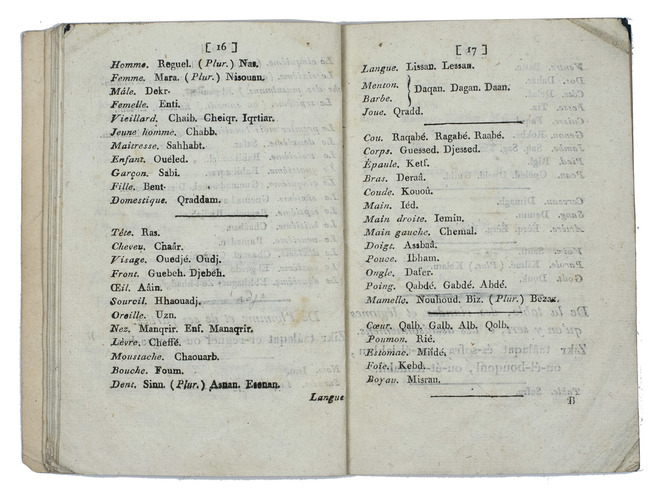 [ 16 ]
Homme. Reguel. (Plur.) Nas.
Femme. Mara. (Plur.) Nisouan.
Mâle. Dekr.
Femelle. Enti.
Vieillard. Chaib. Cheiqr. Iqrtiar.
Jeune homme. Chabb.
Maitresse. Sahhabt.
Enfant. Ouéled.
Garçon. Sabi.
Fille. Bent.
Domestique. Qraddam.
Tête. Ras.
Cheveu. Chaâr.
Visage. Ouedjé. Oudj.
Front. Guebeh. Djebéh.
Œil. Aâin.
Sourcil. Hhaouadj.
Oreille. Uzn.
Nez. Manqrir. Enf. Manaqrir.
Lèvre. Cheffé.
Moustache. Chaouarb.
Bouche. Foum.
Dent. Sinn. (Plur.) Asnan. Esenan.
Langue
[ 17 ]
Langue. Lissan. Lessan.
Menton.
Barbe.
Daqan. Dagan. Daan.
Joue. Qradd.
Cou. Raqabé. Ragabé. Raabé.
Corps. Guessed. Djessed.
Épaule. Ketf.
Bras. Deraâ.
Coude. Kouoû.
Main. Iéd.
Main droite. Iemin.
Main gauche. Chemal.
Doigt. Assbaâ.
Pouce. Ibham.
Ongle. Dafer.
Poing. Qabdé. Gabdé. Abdé.
Mamelle. Nouhoud. Biz. (Plur.) Bezaz.
Cœur. Qalb. Galb. Alb. Qolb.
Poumon. Rié.
Estomac. Miïdé.
Foie. Kebd.
Boyau. Misran.
B